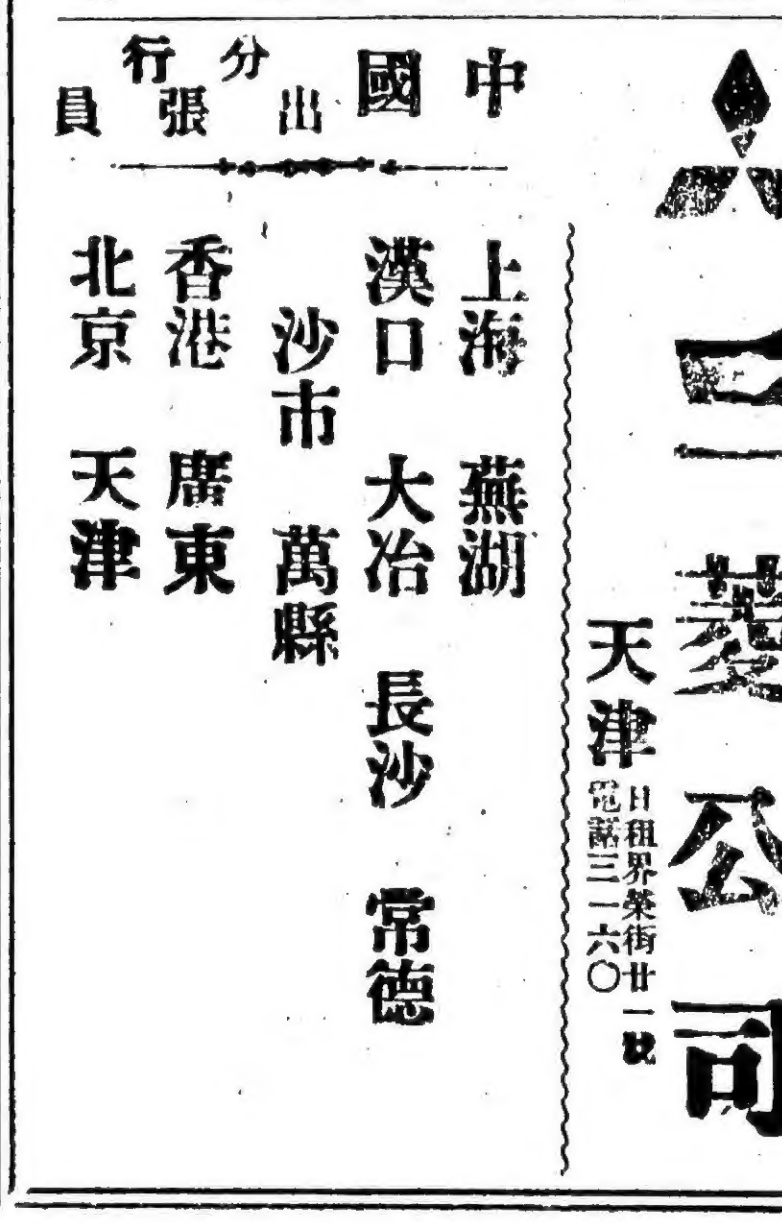 三菱公司
天津
日租界榮街廿一號
電話三一六〇
中國
分行
出張員
上海 蕪湖
漢口 大冶 長沙 常德
沙市 萬縣
香港 廣東
北京 天津